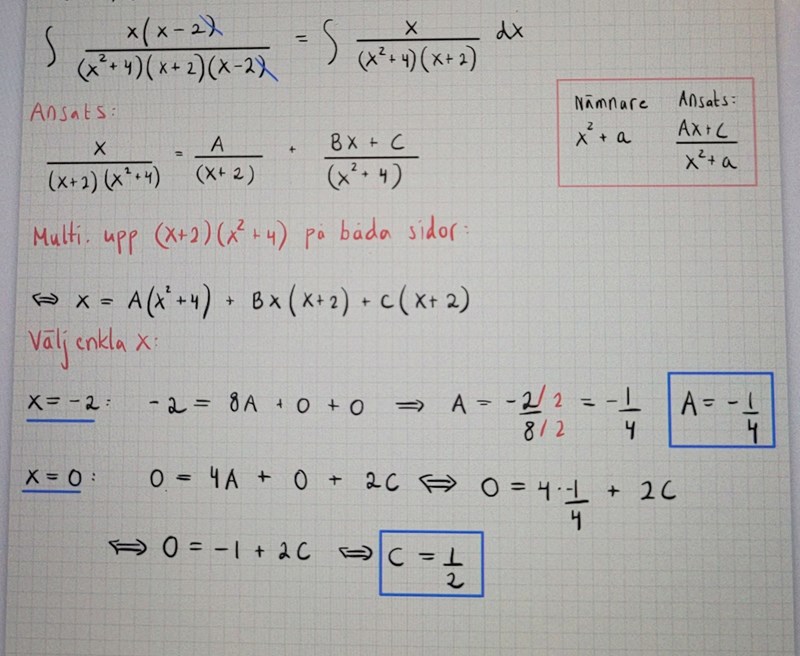 ∫ x(x-2) / (x²+4)(x+2)(x-2) = ∫ x / (x²+4)(x+2) dx
Nämnare Ansats:
x² + a Ax+C / x²+a
Ansats:
x / (x+2)(x²+4) = A / (x+2) + Bx + C / (x² + 4)
Multi. upp (x+2)(x²+4) på båda sidor:
⇔ x = A(x²+4) + Bx(x+2) + C(x+2)
Välj enkla x:
x = -2: -2 = 8A + 0 + 0 ⇒ A = -2/2 / 8/2 = -1/4 A = -1/4
x = 0: 0 = 4A + 0 + 2C ⇔ 0 = 4·-1/4 + 2C
⇔ 0 = -1 + 2C ⇔ C = 1/2